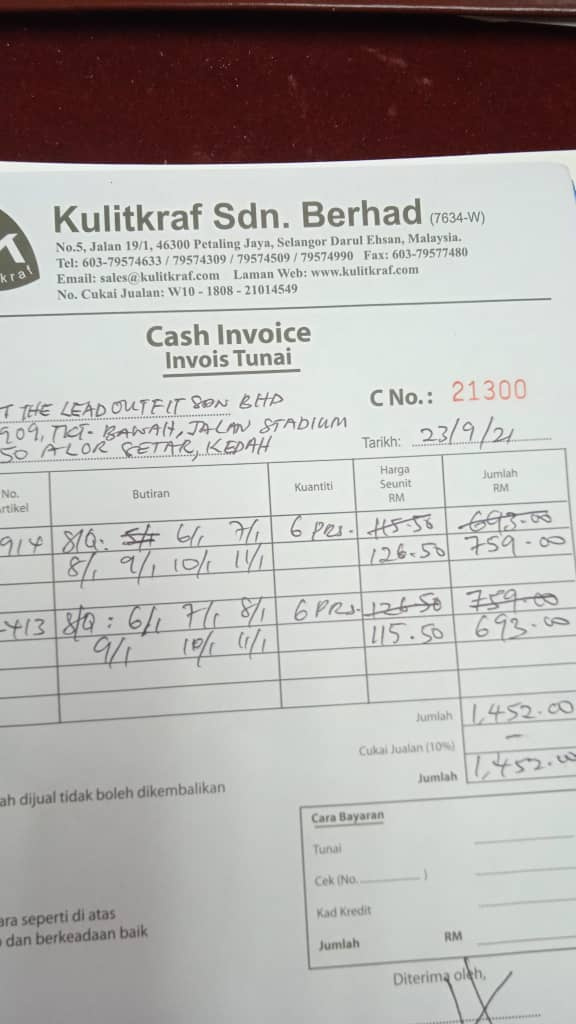 kraf
Kulitkraf Sdn. Berhad (7634-W)
No.5, Jalan 19/1, 46300 Petaling Jaya, Selangor Darul Ehsan, Malaysia.
Tel: 603-79574633 / 79574309 / 79574509 / 79574990 Fax: 603-79577480
Email: sales@kulitkraf.com Laman Web: www.kulitkraf.com
No. Cukai Jualan: W10 - 1808 - 21014549
Cash Invoice
Invois Tunai
T THE LEAD OUTFIT SDN BHD
C No.: 21300
909, TKT. BAWAH, JALAN STADIUM
50 ALOR SETAR, KEDAH
Tarikh: 23/9/21
No. Artikel Butiran Kuantiti Harga Seunit RM Jumlah RM
914 S/Q: 5/1 6/1 7/1 6 PRS. 115.50 693.00
8/1 9/1 10/1 11/1 126.50 759.00
-413 S/Q: 6/1 7/1 8/1 6 PRS. 126.50 759.00
9/1 10/1 11/1 115.50 693.00
Jumlah 1,452.00
Cukai Jualan (10%) -
Jumlah 1,452.00
ah dijual tidak boleh dikembalikan
Cara Bayaran
Tunai
Cek (No. )
Kad Kredit
Jumlah RM
ara seperti di atas
dan berkeadaan baik
Diterima oleh,